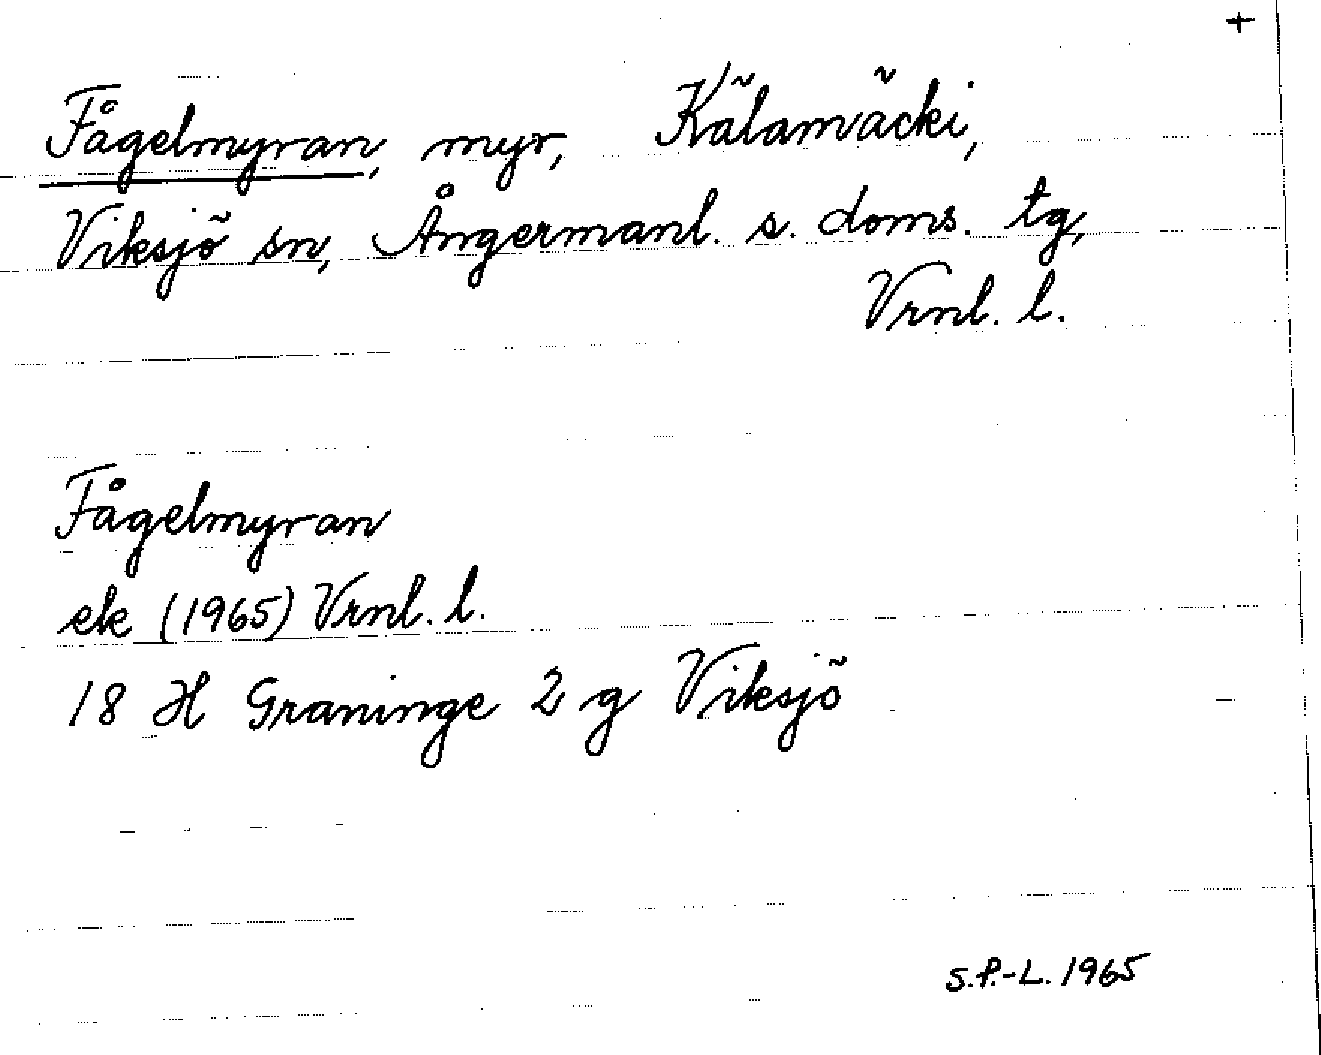 +
Fågelmyran, myr, Kälamäcki,
Viksjö sn, Ångermanl. s. doms. tg,
Vrnl. l.
Fågelmyran
ek (1965) Vrnl. l.
18 H Graninge 2 g Viksjö
S.P.-L. 1965